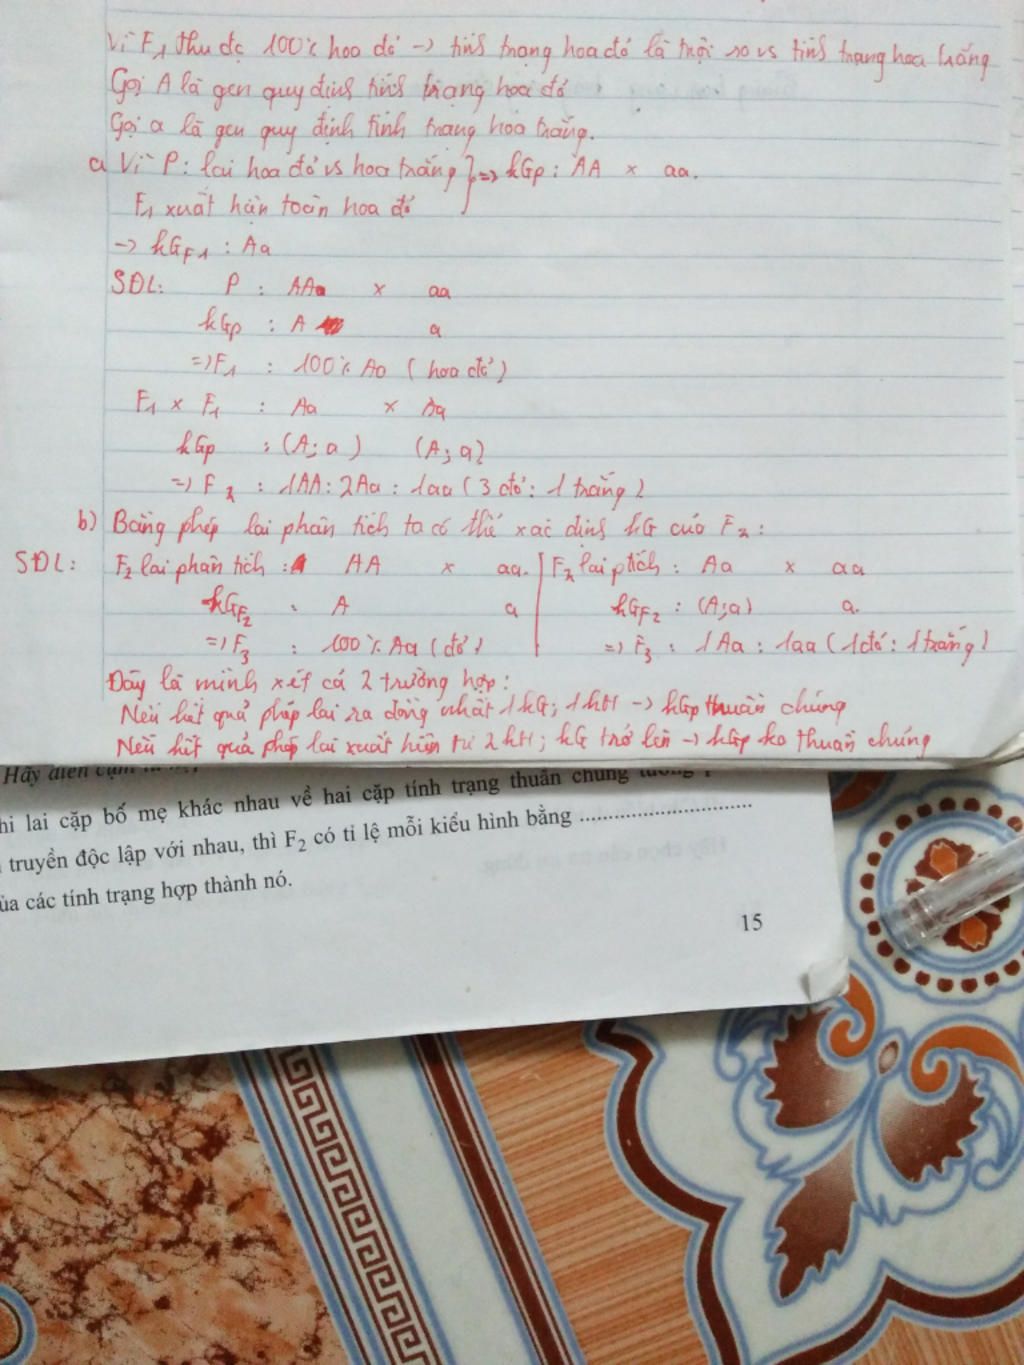 Vì F1 thu đc 100% hoa đỏ -> tính trạng hoa đỏ là trội so vs tính trạng hoa trắng
Gọi A là gen quy định tính trạng hoa đỏ
Gọi a là gen quy định tính trạng hoa trắng.
a Vì P: lai hoa đỏ vs hoa trắng } => kGp: AA x aa.
F1 xuất hiện toàn hoa đỏ
-> kGF1 : Aa
SĐL: P : AA x aa
kGp : A a
=> F1 : 100% Aa ( hoa đỏ )
F1 x F1 : Aa x Aa
kGp : (A; a ) (A; a)
=> F2 : 1AA: 2Aa: 1aa ( 3 đỏ: 1 trắng )
b) Bằng phép lai phân tích ta có thể xác định kG của F2:
SĐL: F2 lai phân tích : AA x aa. | F2 lai ptích : Aa x aa
kGF2 : A a kGF2 : (A;a) a.
=> F3 : 100% Aa ( đỏ ) => F3 : 1Aa : 1aa ( 1đỏ: 1trắng )
Đây là mình xét cả 2 trường hợp:
Nếu kết quả phép lai ra đồng nhất 1kG; 1kH -> kGp thuần chủng
Nếu kết quả phép lai xuất hiện từ 2kH; kG trở lên -> kGp ko thuần chủng
Hãy điền cụm từ
hi lai cặp bố mẹ khác nhau về hai cặp tính trạng thuần chủng tương p
truyền độc lập với nhau, thì F2 có tỉ lệ mỗi kiểu hình bằng ..............................
ủa các tính trạng hợp thành nó.
15